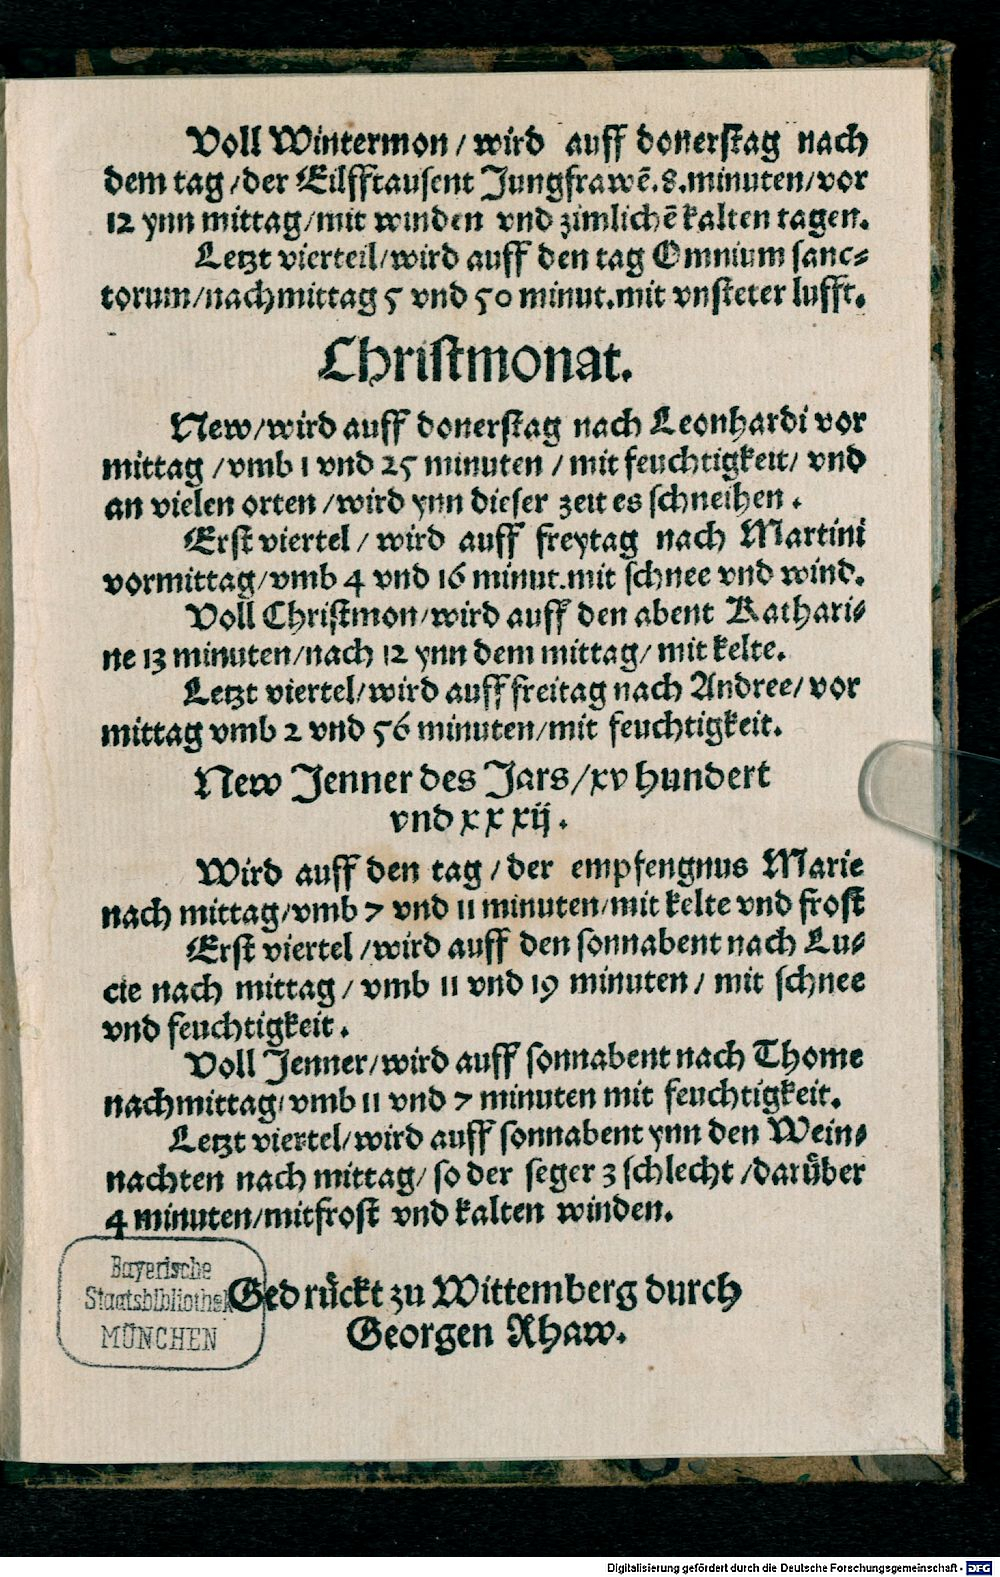 Voll Wintermon / wird auff donerstag nach
dem tag / der Eilfftausent Jungfrawē. 8. minuten / vor
12 ynn mittag / mit winden vnd zimlichē kalten tagen.
Letzt vierteil / wird auff den tag Omnium sanc⸗
torum / nachmittag 5 vnd 50 minut. mit vnsteter lufft.
Christmonat.
New / wird auff donerstag nach Leonhardi vor
mittag / vmb 1 vnd 25 minuten / mit feuchtigkeit / vnd
an vielen orten / wird ynn dieser zeit es schneihen.
Erst viertel / wird auff freytag nach Martini
vormittag / vmb 4 vnd 16 minut. mit schnee vnd wind.
Voll Christmon / wird auff den abent Kathari⸗
ne 13 minuten / nach 12 ynn dem mittag / mit kelte.
Letzt viertel / wird auff freitag nach Andree / vor
mittag vmb 2 vnd 56 minuten / mit feuchtigkeit.
New Jenner des Jars / xv hundert
vnd x x xij.
Wird auff den tag / der empfengnus Marie
nach mittag / vmb 7 vnd 11 minuten / mit kelte vnd frost
Erst viertel / wird auff den sonnabent nach Lu⸗
cie nach mittag / vmb 11 vnd 19 minuten / mit schnee
vnd feuchtigkeit.
Voll Jenner / wird auff sonnabent nach Thome
nachmittag / vmb 11 vnd 7 minuten mit feuchtigkeit.
Letzt viertel / wird auff sonnabent ynn den Wein⸗
nachten nach mittag / so der seger 3 schlecht / darüber
4 minuten / mit frost vnd kalten winden.
Gedrückt zu Wittemberg durch
Georgen Rhaw.
Bayerische
Staatsbibliothek
MÜNCHEN
Digitalisierung gefördert durch die Deutsche Forschungsgemeinschaft - DFG